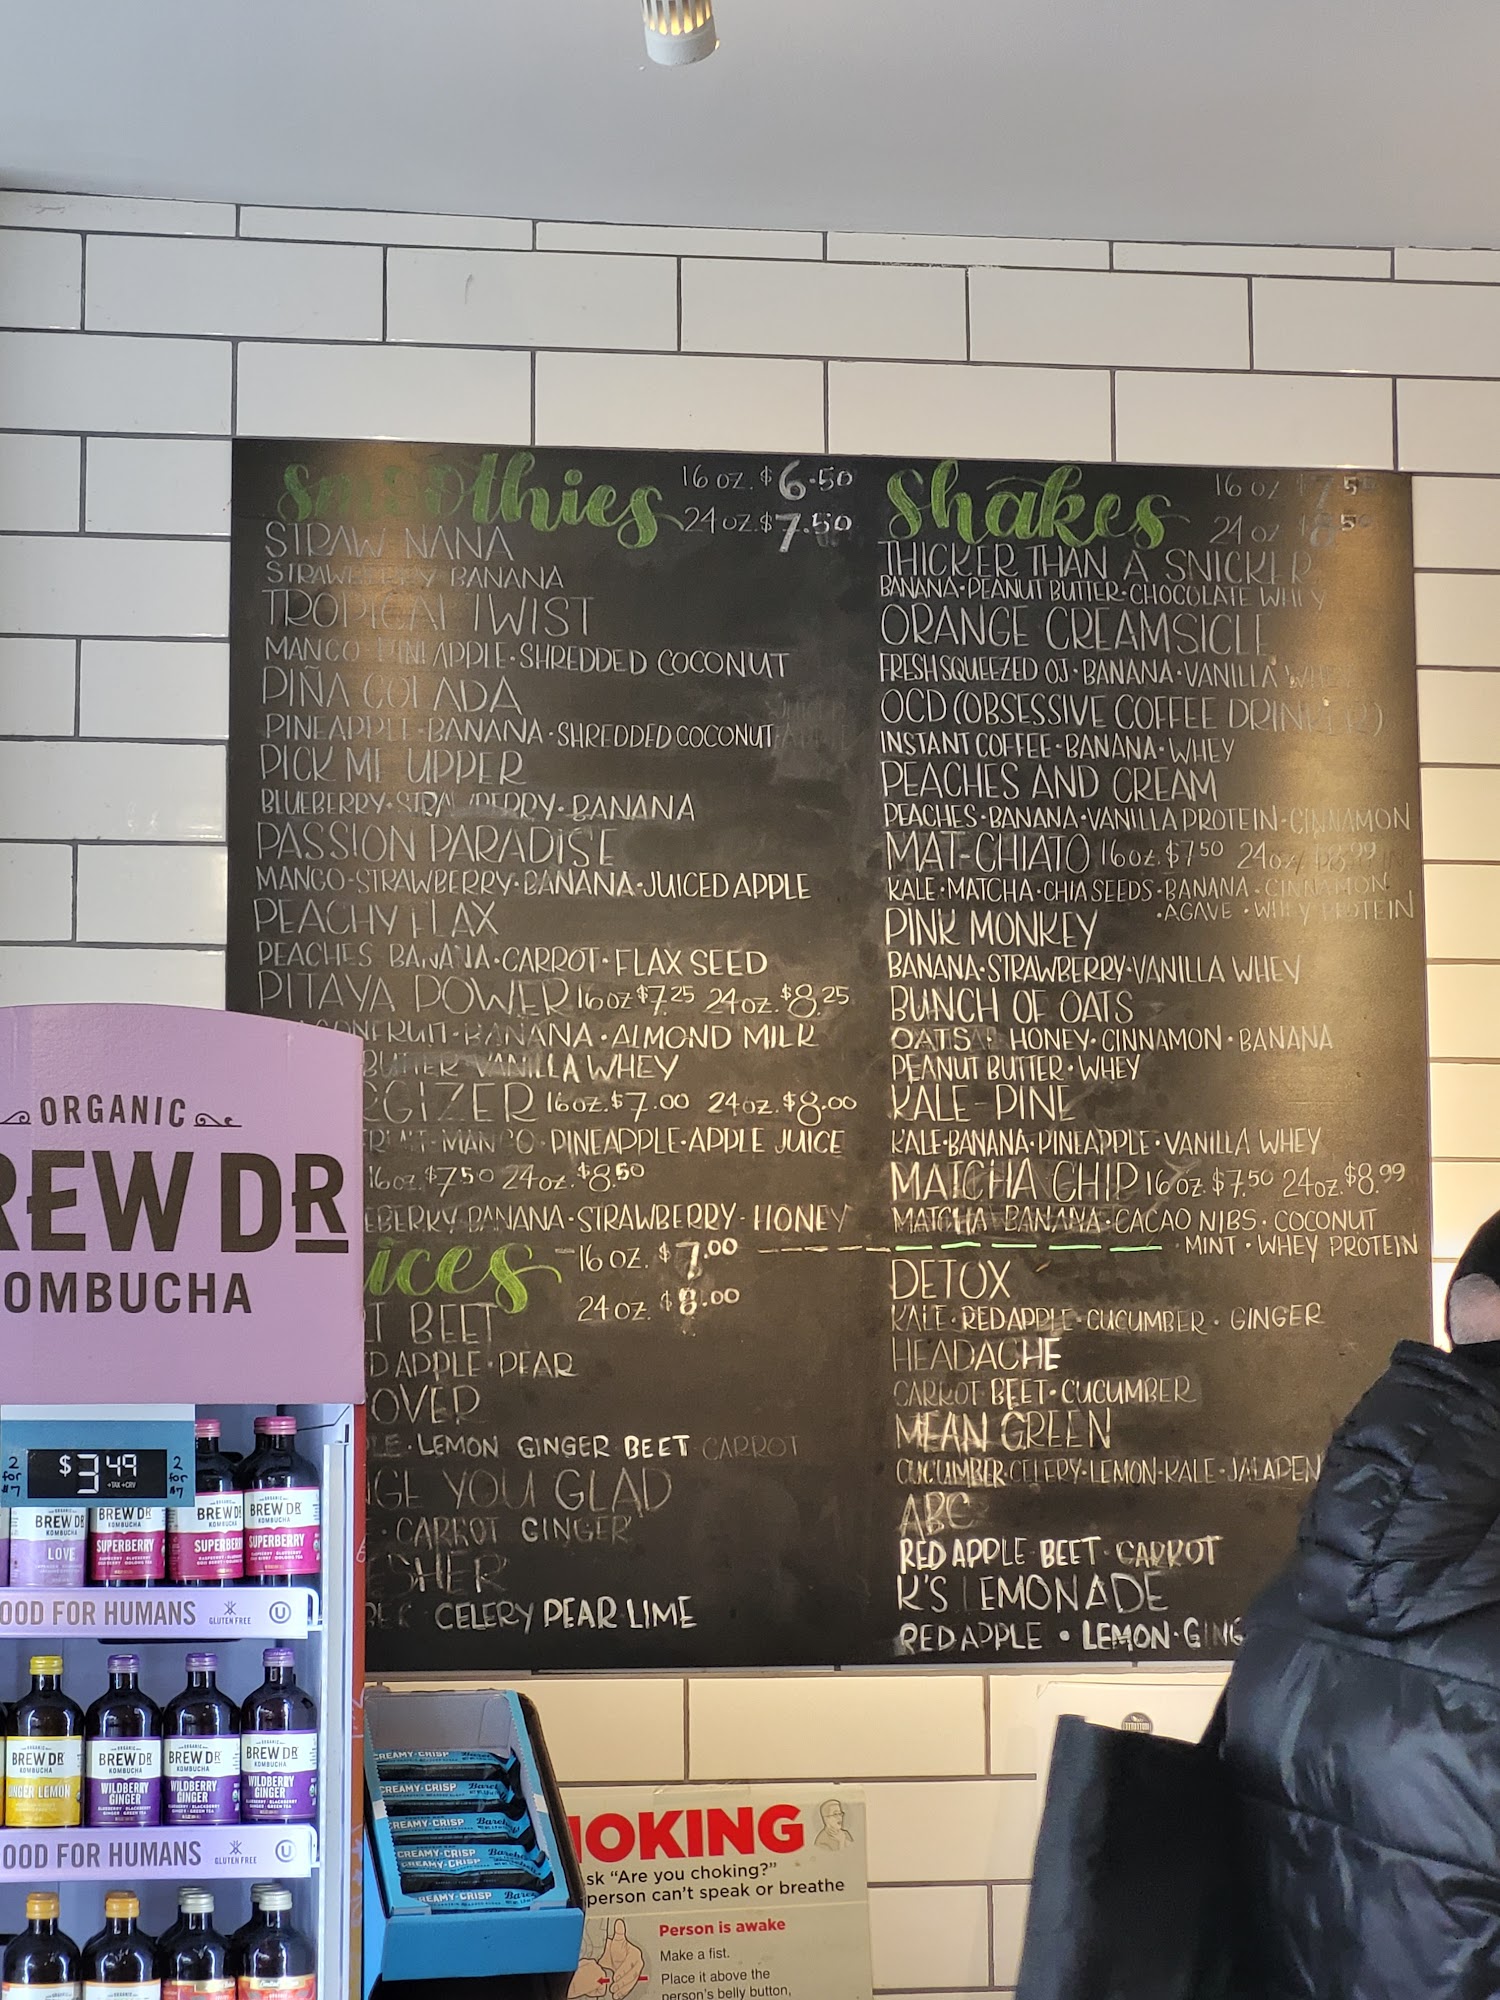 Smoothies 16 oz. $6.50
24 oz. $7.50
STRAW NANA
STRAWBERRY BANANA
TROPICAL TWIST
MANGO PINEAPPLE • SHREDDED COCONUT
PIÑA COLADA
PINEAPPLE • BANANA • SHREDDED COCONUT
PICK ME UPPER
BLUEBERRY • STRAWBERRY • BANANA
PASSION PARADISE
MANGO • STRAWBERRY • BANANA • JUICED APPLE
PEACHY FLAX
PEACHES BANANA • CARROT • FLAX SEED
PITAYA POWER 16oz $7.25 24oz. $8.25
BANANA • ALMOND MILK
BUTTER VANILLA WHEY
RGIZER 16oz. $7.00 24oz. $8.00
MANGO • PINEAPPLE • APPLE JUICE
16oz. $7.50 24oz. $8.50
EBERRY BANANA • STRAWBERRY • HONEY
ices 16 oz. $7.00
24 oz. $8.00
T BEET
D APPLE • PEAR
OVER
LE • LEMON GINGER BEET CARROT
GE YOU GLAD
• CARROT GINGER
SHER
CELERY PEAR LIME
Shakes 16 oz $7.50
24 oz $8.50
THICKER THAN A SNICKER
BANANA • PEANUT BUTTER • CHOCOLATE WHEY
ORANGE CREAMSICLE
FRESH SQUEEZED OJ • BANANA • VANILLA WHEY
OCD (OBSESSIVE COFFEE DRINKER)
INSTANT COFFEE • BANANA • WHEY
PEACHES AND CREAM
PEACHES • BANANA • VANILLA PROTEIN • CINNAMON
MAT-CHIATO 16oz. $7.50 24oz $8.99
KALE • MATCHA • CHIA SEEDS • BANANA • CINNAMON
• AGAVE • WHEY PROTEIN
PINK MONKEY
BANANA • STRAWBERRY • VANILLA WHEY
BUNCH OF OATS
OATS • HONEY • CINNAMON • BANANA
PEANUT BUTTER • WHEY
KALE-PINE
KALE • BANANA • PINEAPPLE • VANILLA WHEY
MATCHA CHIP 16oz. $7.50 24oz. $8.99
MATCHA BANANA • CACAO NIBS • COCONUT
• MINT • WHEY PROTEIN
DETOX
KALE • RED APPLE • CUCUMBER • GINGER
HEADACHE
CARROT BEET • CUCUMBER
MEAN GREEN
CUCUMBER • CELERY • LEMON • KALE • JALAPEN
ABC
RED APPLE BEET • CARROT
K'S LEMONADE
RED APPLE • LEMON • GING
ORGANIC
REW DR
OMBUCHA
2 for $7 $3.49 2 for $7
+TAX +CRV
BREW DR KOMBUCHA LOVE
BREW DR KOMBUCHA SUPERBERRY
BREW DR KOMBUCHA SUPERBERRY
BREW DR KOMBUCHA SUPERBERRY
OOD FOR HUMANS GLUTEN FREE U
BREW DR KOMBUCHA INGER LEMON
BREW DR KOMBUCHA WILDBERRY GINGER
BREW DR KOMBUCHA WILDBERRY GINGER
BREW DR KOMBUCHA WILDBERRY GINGER
OOD FOR HUMANS GLUTEN FREE U
CREAMY-CRISP
CREAMY-CRISP
CREAMY-CRISP
CREAMY-CRISP
CREAMY-CRISP
HOKING
sk "Are you choking?"
person can't speak or breathe
Person is awake
Make a fist.
Place it above the
person's belly button,